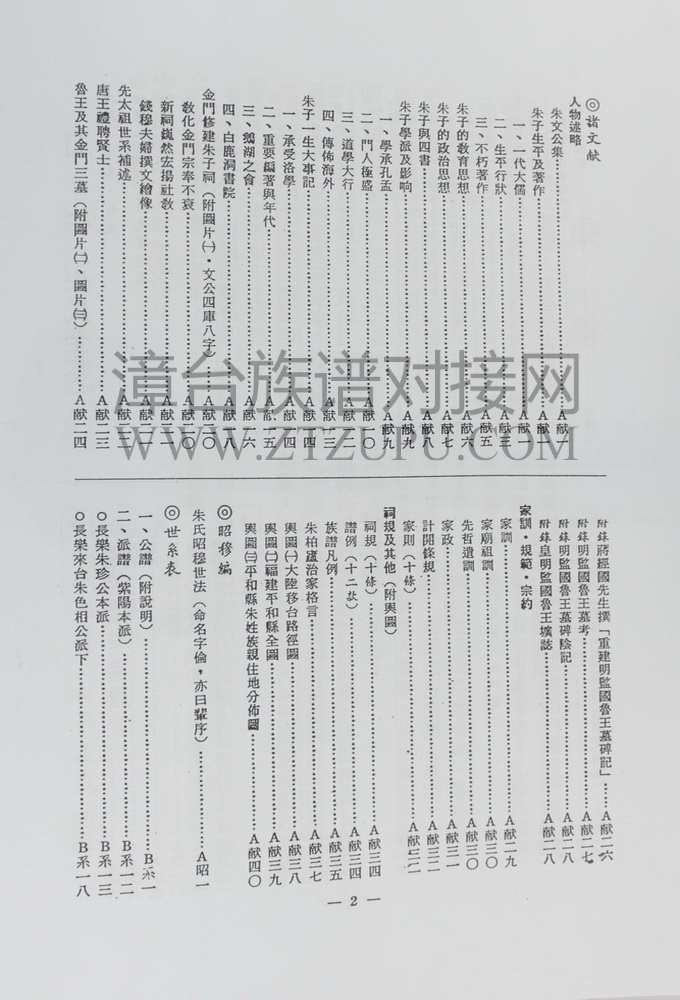 ◎諸文献
人物述略
朱文公集……A献一
朱子生平及著作……A献一
一、一代大儒……A献一
二、生平行狀……A献三
三、不朽著作……A献五
朱子的敎育思想……A献六
朱子的政治思想……A献七
朱子與四書……A献八
朱子學派及影响……A献九
一、學承孔孟……A献九
二、門人極盛……A献一〇
三、道學大行……A献一二
四、傳佈海外……A献一三
朱子一生大事記……A献一四
一、承受洛學……A献一四
二、重要編著與年代……A献一五
三、鵝湖之會……A献一六
四、白鹿洞書院……A献一八
金門修建朱子祠（附圖片㈠・文公四庫八字）……A献二〇
敎化金門宗奉不衰……A献二〇
新祠巍然宏揚社敎……A献二一
錢穆夫婦撰文繪像……A献二一
先太祖世系補述……A献二二
唐王禮聘賢士……A献二三
魯王及其金門三墓（附圖片㈡、圖片㈢）……A献二四
附錄蔣經國先生撰「重建明監國魯王墓碑記」……A献二六
附錄明監國魯王墓考……A献二七
附錄明監國魯王墓碑陰記……A献二八
附錄皇明監國魯王壙誌……A献二八
家訓・規範・宗約
家訓……A献二九
家廟祖訓……A献三〇
先哲遺訓……A献三〇
家政……A献三一
計開條規……A献三二
家則（十條）……A献三二
祠規及其他（附輿圖）
祠規（十條）……A献三四
譜例（十二款）……A献三四
族譜凡例……A献三五
朱柏廬治家格言……A献三七
輿圖㈠大陸移台路徑圖……A献三八
輿圖㈡福建平和縣全圖……A献三九
輿圖㈢平和縣朱姓族親住地分佈圖……A献四〇
◎昭穆編
朱氏昭穆世法（命名字倫，亦曰輩序）……A昭一
◎世系表
一、公譜（附說明）……B系一
二、派譜（紫陽本派）……B系一二
○長樂朱珍公本派……B系一三
○長樂來台朱色相公派下……B系一八
— 2 —
漳台族谱对接网
WWW.ZTZUPU.COM